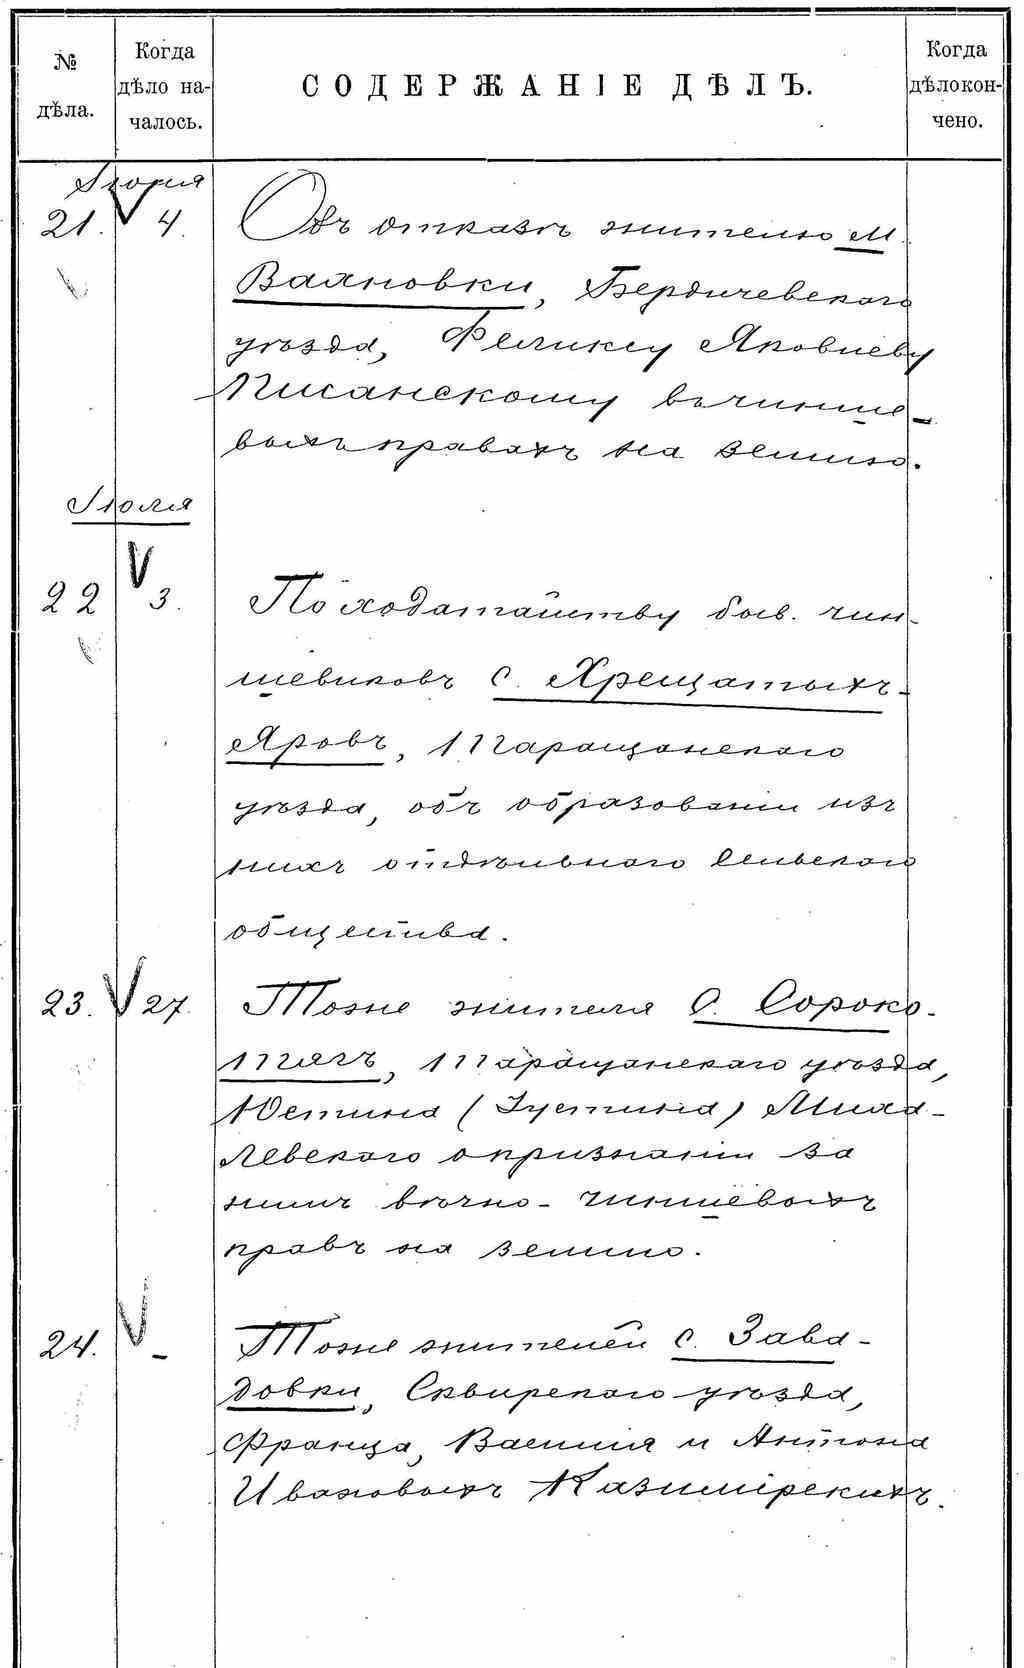 № дѣла.
Когда дѣло на-
чалось.
СОДЕРЖАНІЕ ДѢЛЪ.
Когда дѣло кон-
чено.
Іюня
21. 4. Объ отказѣ жителю м.
Вахновки, Бердичевскаго
уѣзда, Феликсу Яковлеву
Писанскому въ чинше-
выхъ правахъ на землю.
Іюля
22 3. По ходатайству быв. чин-
шевиковъ с. Хрещатыхъ-
Яровъ, Таращанскаго
уѣзда, объ образованіи изъ
нихъ отдѣльнаго сельскаго
общества.
23. 27. Тоже жителя с. Сороко-
тягъ, Таращанскаго уѣзда,
Юстина (Густина) Миха-
левскаго о признаніи за
нимъ вѣчно-чиншевыхъ
правъ на землю.
24. - Тоже жителей с. Зава-
довки, Сквирскаго уѣзда,
Франца, Василія и Антона
Ивановыхъ Казимірскихъ.